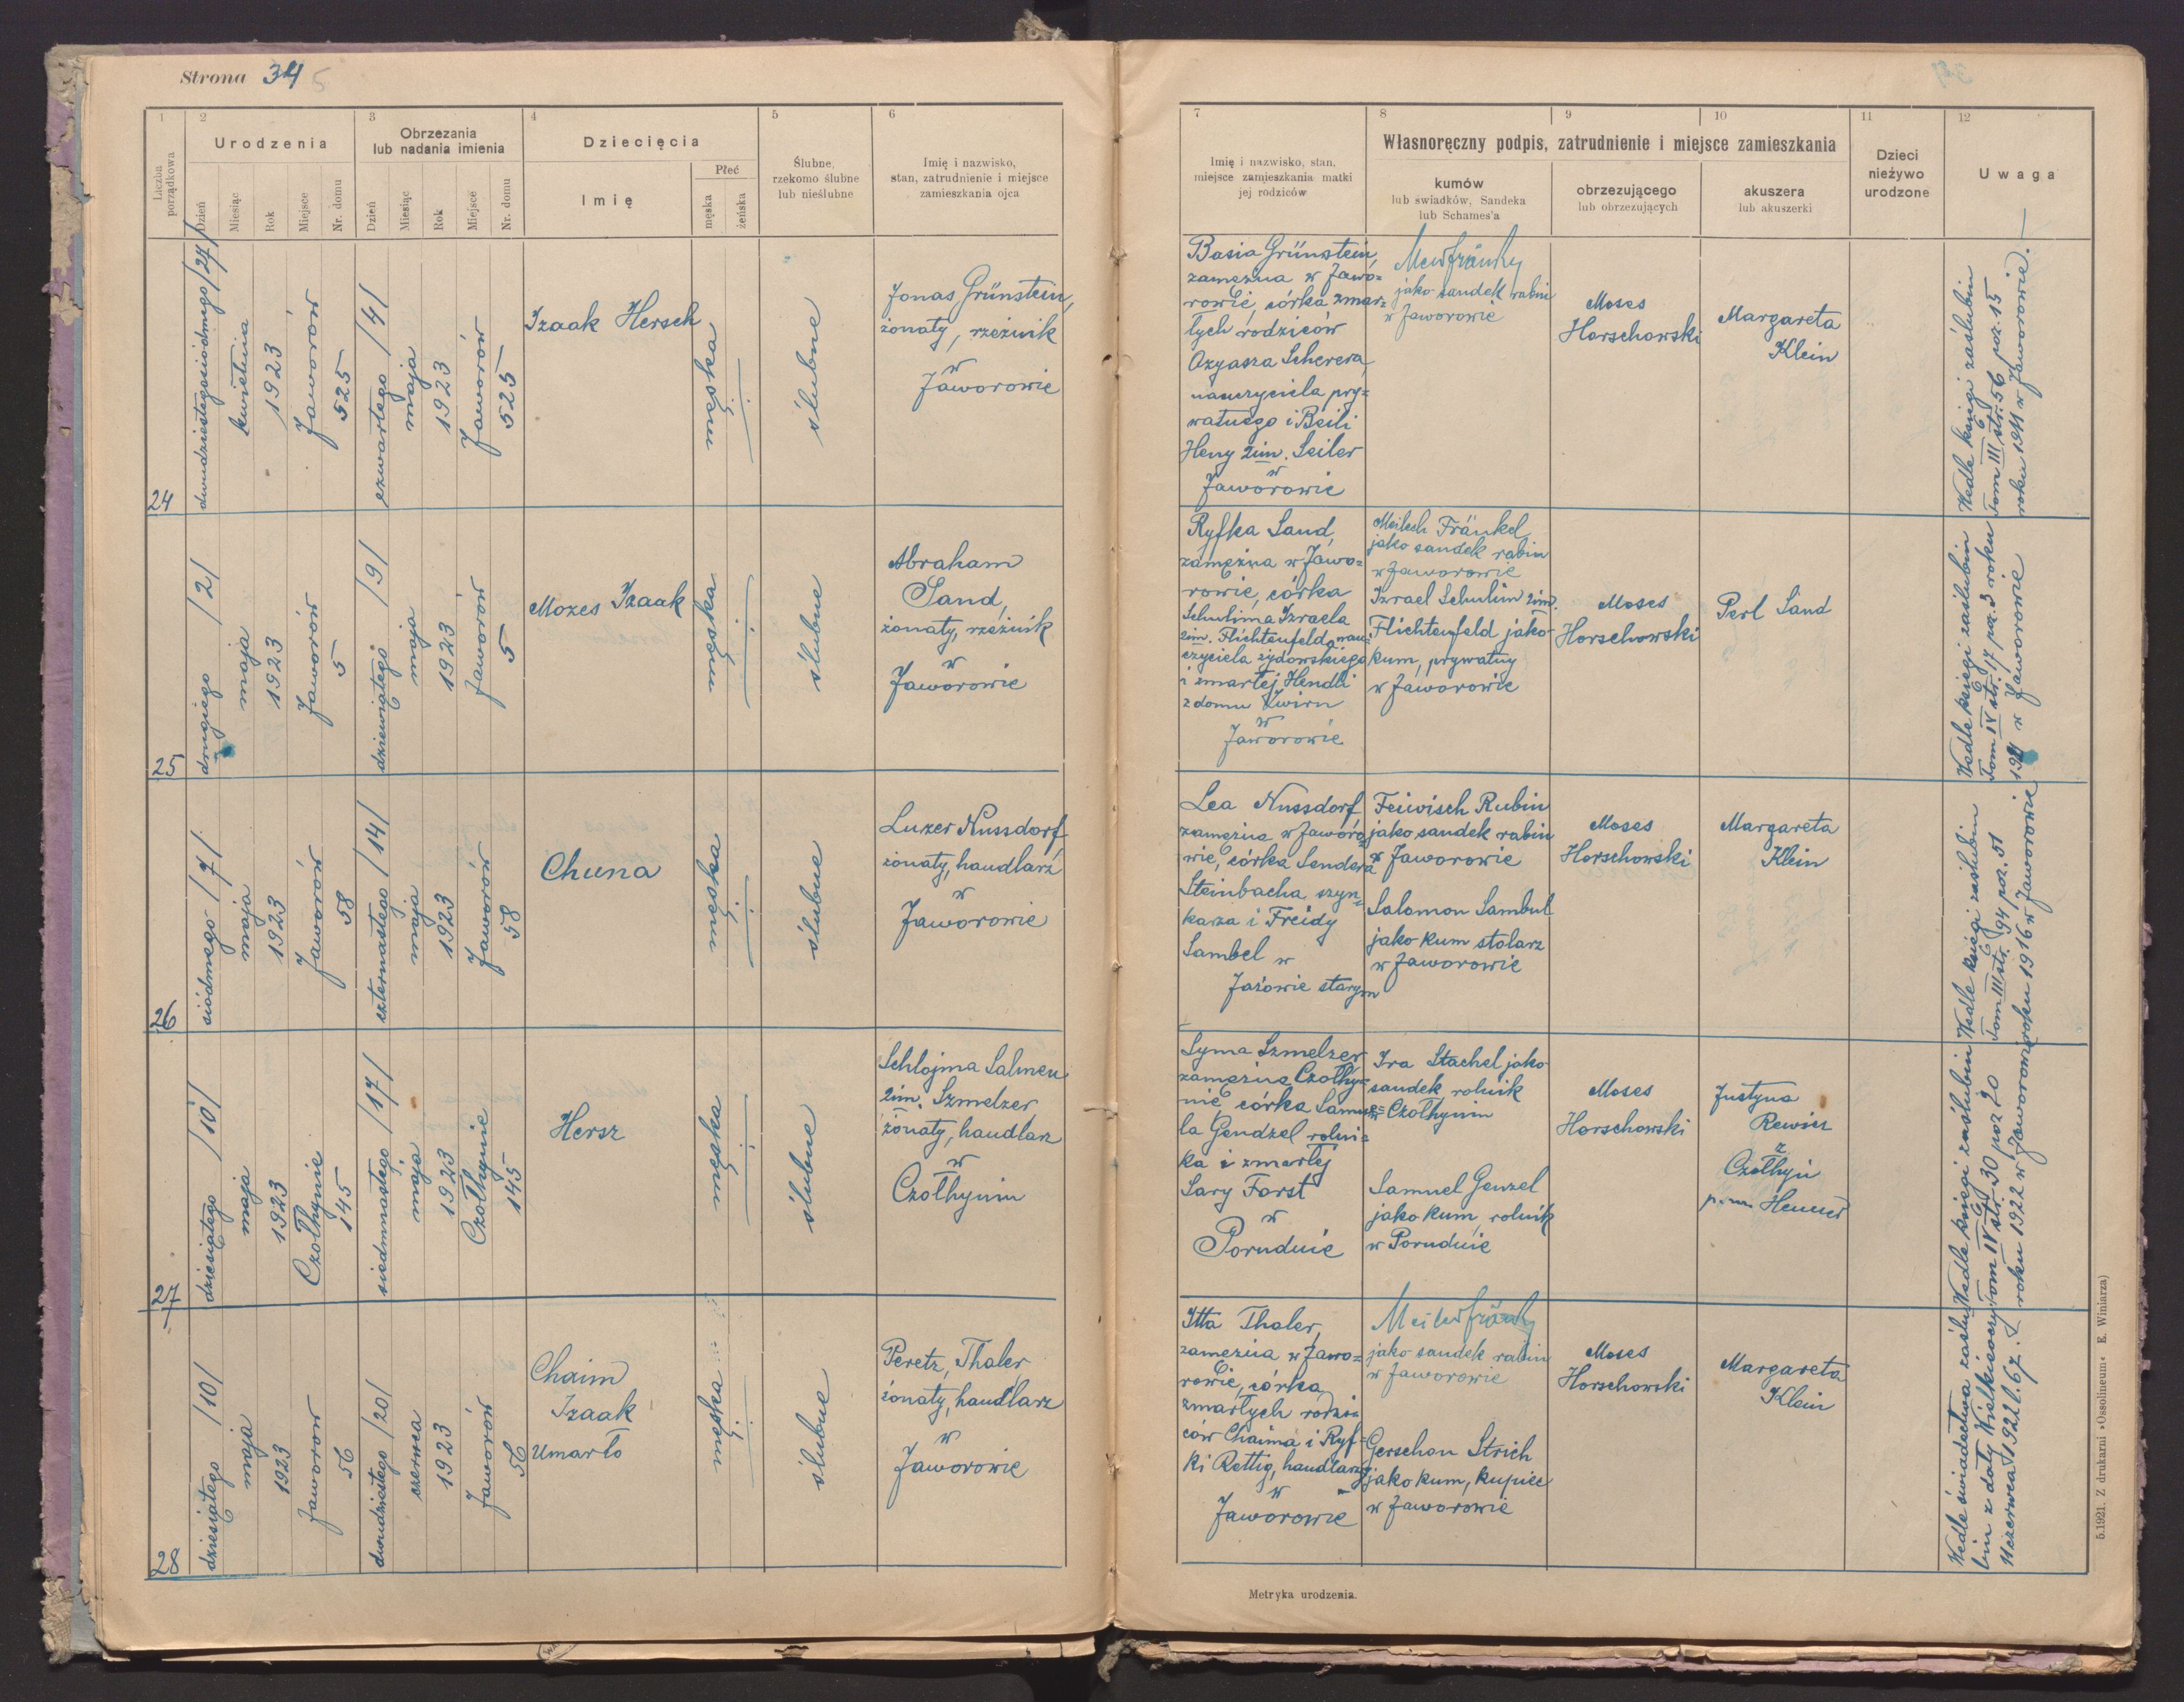 Strona 34 5
1
2
3
4
5
6
Liczba porządkowa
Urodzenia
Dzień
Miesiąc
Rok
Miejsce
Nr. domu
Obrzezania
lub nadania imienia
Dzień
Miesiąc
Rok
Miejsce
Nr. domu
Dziecięcia
Imię
Płeć
męska
żeńska
Ślubne,
rzekomo ślubne
lub nieślubne
Imię i nazwisko,
stan, zatrudnienie i miejsce
zamieszkania ojca
7
8
9
10
11
12
Imię i nazwisko, stan,
miejsce zamieszkania matki
jej rodziców
Własnoręczny podpis, zatrudnienie i miejsce zamieszkania
kumów
lub świadków, Sandeka
lub Schames'a
obrzezującego
lub obrzezujących
akuszera
lub akuszerki
Dzieci
nieżywo
urodzone
Uwaga
24
dwudziestegosiódmego /27/
kwietnia
1923
Jaworów
525
czwartego /4/
maja
1923
Jaworów
525
Izaak Hersch
męska
ślubne
Jonas Grünstein,
żonaty, rzeźnik
w
Jaworowie
Basia Grünstein,
zamężna w Jawo=
rowie, córka zmar=
łych rodziców
Ozyasza Scherera,
nauczyciela pry=
watnego i Beili
Heny 2im. Seiler
w
Jaworowie
jako sandek rabin
w Jaworowie
Moses
Horschowski
Margareta
Klein
Wedle księgi zaślubin
Tom III str. 56 poz. 15
roku 1911 w Jaworowie. —
25
drugiego /2/
maja
1923
Jaworów
5
dziewiątego /9/
maja
1923
Jaworów
5
Mozes Izaak
męska
ślubne
Abraham
Sand,
żonaty, rzeźnik
w
Jaworowie
Ryfka Sand,
zamężna w Jawo=
rowie, córka
Schulima Izraela
2im. Flichtenfeld, nau=
czyciela żydowskiego
i zmarłej Hendli
z domu Zwirn
w
Jaworowie
Meilech Fränkel,
jako sandek rabin
w Jaworowie
Izrael Schulim 2im.
Flichtenfeld jako
kum, prywatny
w Jaworowie
Moses
Horschowski
Perl Sand
Wedle księgi zaślubin
Tom IV str. 17 poz. 3 roku
w Jaworowie
26
siódmego /7/
maja
1923
Jaworów
58
czternastego /14/
maja
1923
Jaworów
58
Chuna
męska
ślubne
Luzer Nussdorf,
żonaty, handlarz
w
Jaworowie
Lea Nussdorf
zamężna w Jaworo=
wie, córka Sendera
Steinbacha, szyn=
karza i Freidy
Sambel w
Jażowie starym
Feiwisch Rubin
jako sandek rabin
w Jaworowie
Salomon Sambul
jako kum stolarz
w Jaworowie
Moses
Horschowski
Margareta
Klein
Wedle księgi zaślubin
Tom III str. 94 poz. 51
roku 1916 w Jaworowie
27
dziesiątego /10/
maja
1923
Czołhynie
145
siedmnastego /17/
maja
1923
Czołhynie
145
Hersz
męska
ślubne
Schlojma Salmen
2im. Szmelzer,
żonaty, handlarz
w
Czołhyniu
Syma Szmelzer
zamężna Czołhy=
nie, córka Samue=
la Gendzel rolni=
ka i zmarłej
Sary Forst
w
Porudnie
Ira Stachel jako
sandek, rolnik
w Czołhyniu
Samuel Genzel
jako kum, rolnik
w Porudnie
Moses
Horschowski
Justyna
Rewicz
z
Czołhyń
Wedle księgi zaślubin
Tom IV str. 30 poz 20
roku 1922 w Jaworowie
28
dziesiątego /10/
maja
1923
Jaworów
56
dwudziestego /20/
czerwca
1923
Jaworów
56
Chaim
Izaak
Umarło
męska
ślubne
Peretz Thaler,
żonaty, handlarz
w
Jaworowie
Itta Thaler,
zamężna w Jawo=
rowie, córka
zmarłych rodzi=
ców Chaima i Ryf=
ki Rettig, handlarzy
w
Jaworowie
jako sandek rabin
w Jaworowie
Gerschon Strich
jako kum, kupiec
w Jaworowie
Moses
Horschowski
Margareta
Klein
Wedle świadectwa zaślu=
bin z daty Wielkieoczy
11 czerwca 1922 l. 67.
Metryka urodzenia.
5.1921. Z drukarni »Ossolineum« E. Winiarza)